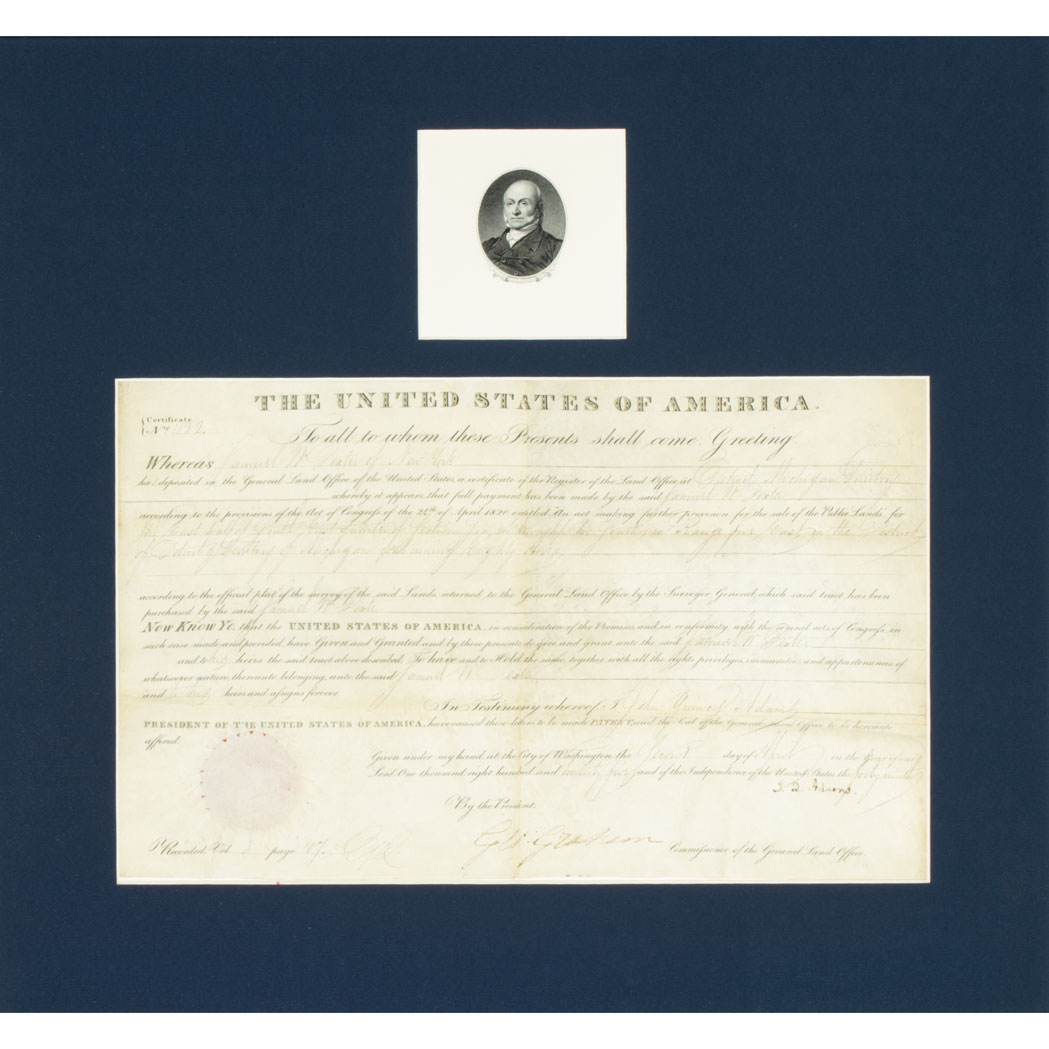 THE UNITED STATES OF AMERICA.
Certificate
No. 1132
To all to whom these Presents shall come, Greeting
Whereas Samuel W. Dexter of New York
has deposited in the General Land Office of the United States, a certificate of the Register of the Land Office at Detroit Michigan Territory
whereby it appears that full payment has been made by the said Samuel W. Dexter
according to the provisions of the Act of Congress of the 24th of April 1820 entitled "An act making further provision for the sale of the Public Lands," for
the East half of South quarter of Section in township two South, in Range five, East in the District
of Detroit, Territory of Michigan containing Eighty Acres
according to the official plat of the survey of the said Lands, returned to the General Land Office by the Surveyor General, which said tract has been
purchased by the said Samuel W. Dexter
Now Know Ye, that the UNITED STATES OF AMERICA, in consideration of the Premises, and in conformity with the several acts of Congress, in
such case made and provided, have Given and Granted, and by these presents do give and grant, unto the said Samuel W. Dexter
and to his heirs the said tract above described: To have and to Hold the same, together with all the rights, privileges, immunities, and appurtenances of
whatsoever nature, thereunto belonging, unto the said Samuel W. Dexter
and to his heirs and assigns forever
In Testimony whereof I, John Quincy Adams
PRESIDENT OF THE UNITED STATES OF AMERICA, have caused these letters to be made PATENT, and the Seal of the General Land Office to be hereunto
affixed.
Given under my hand, at the City of Washington, the day of April in the
Lord One thousand eight hundred and twenty five and of the Independence of the United States the forty ninth
J. Q. Adams.
By the President.
Geo. Graham Commissioner of the General Land Office.
Recorded, Vol. page